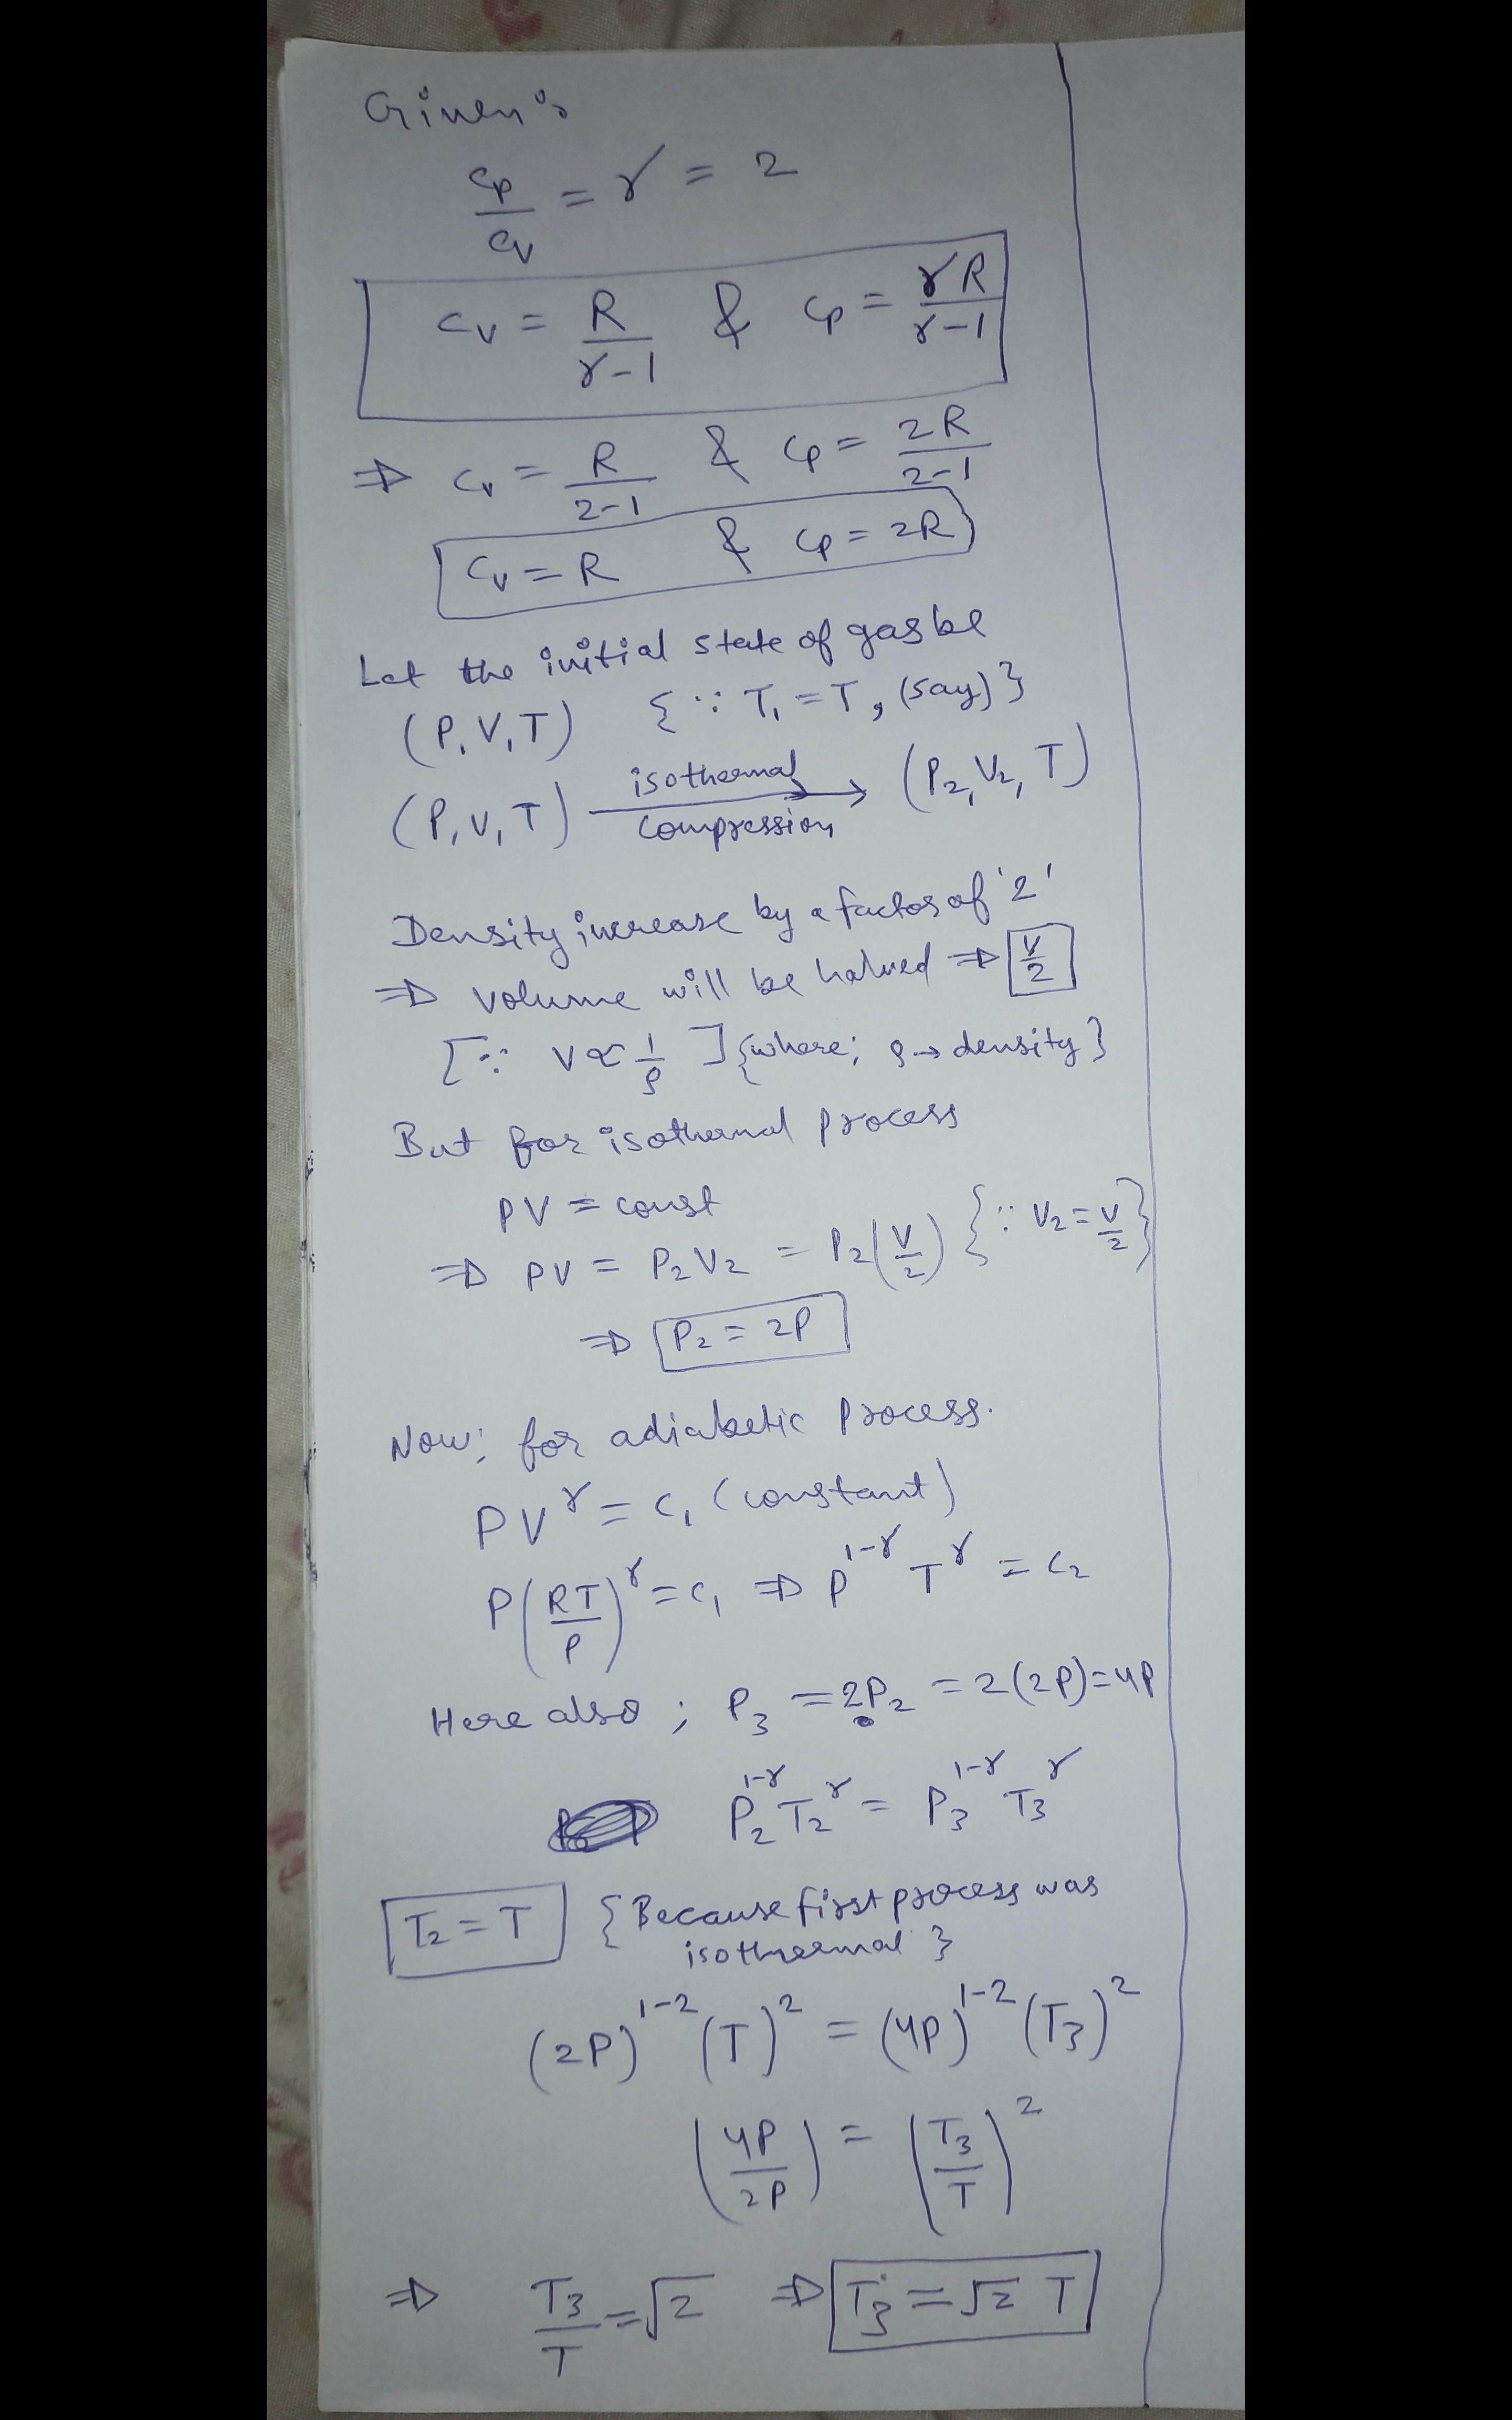 Given :
Cp/Cv = γ = 2
Cv = R/(γ-1) & Cp = γR/(γ-1)
⇒ Cv = R/(2-1) & Cp = 2R/(2-1)
Cv = R & Cp = 2R
Let the initial state of gas be
(P, V, T) {∵ T₁ = T, (say)}
(P, V, T) isothermal compression → (P₂, V₂, T)
Density increase by a factor of '2'
⇒ volume will be halved ⇒ V/2
[∵ V ∝ 1/ρ ] {where; ρ → density}
But for isothermal process
PV = const
⇒ PV = P₂V₂ = P₂(V/2) {∵ V₂ = V/2}
⇒ P₂ = 2P
Now; for adiabetic process.
PV^γ = C₁ (constant)
P(RT/P)^γ = C₁ ⇒ P^(1-γ) T^γ = C₂
Here also ; P₃ = 2P₂ = 2(2P) = 4P
P₂^(1-γ) T₂^γ = P₃^(1-γ) T₃^γ
T₂ = T {Because first process was
isothermal }
(2P)^(1-2) (T)^2 = (4P)^(1-2) (T₃)^2
(4P/2P) = (T₃/T)^2
⇒ T₃/T = √2 ⇒ T₃ = √2 T